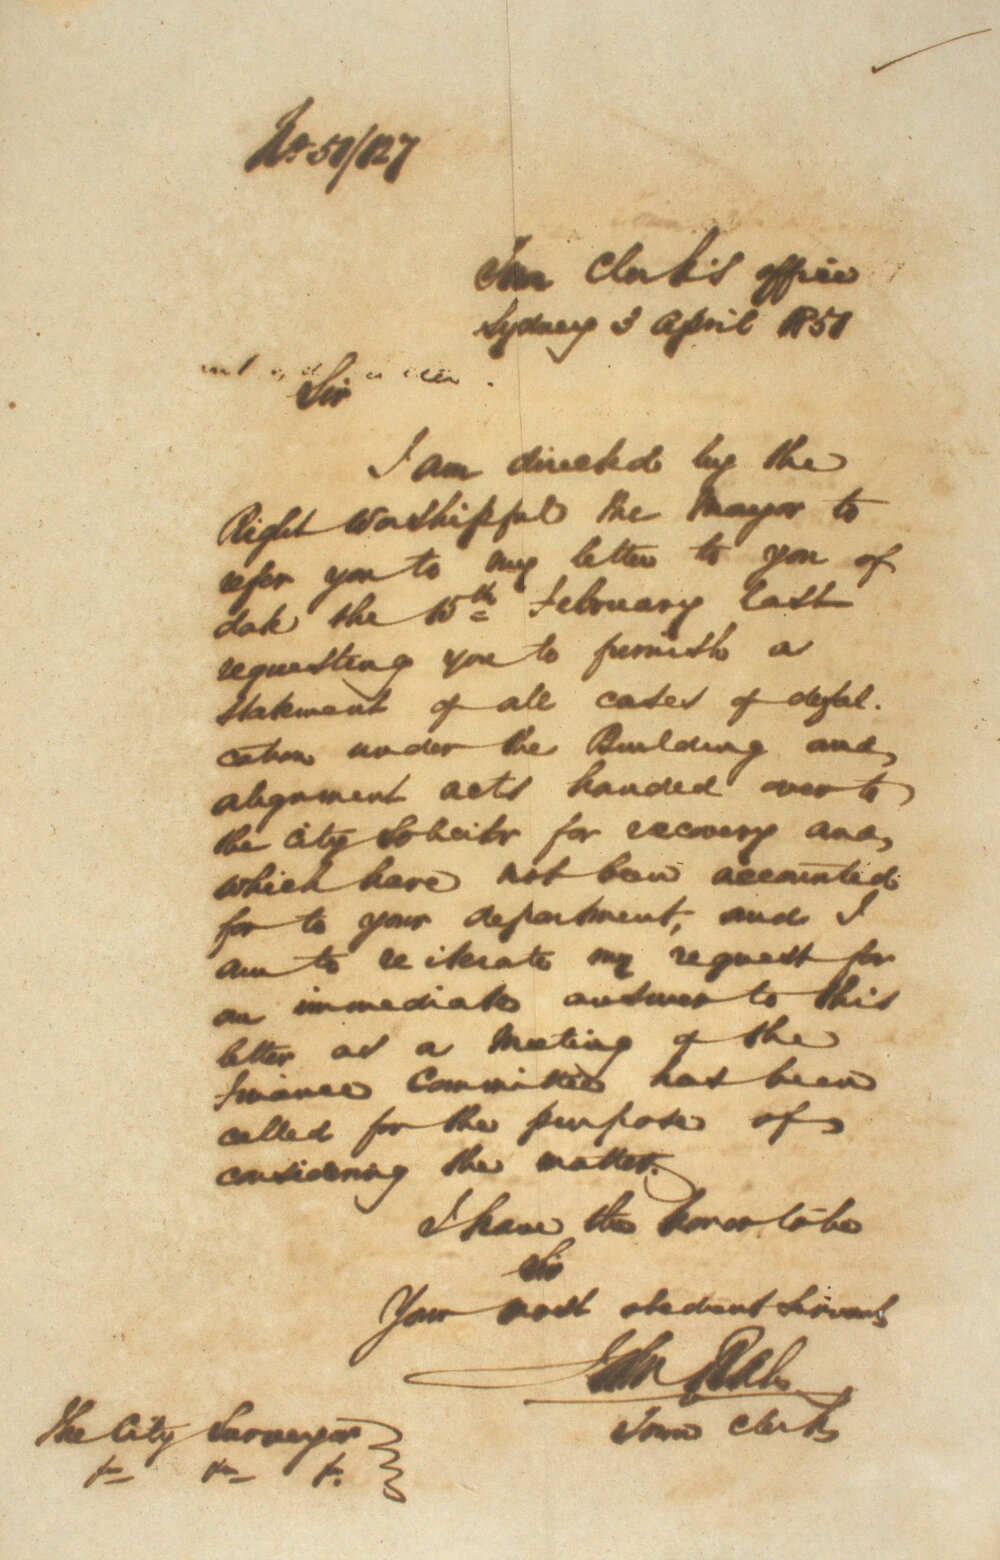 No. 51/127
Town Clerk's office
Sydney 3 April 1851
Sir
I am directed by the
Right Worshipful the Mayor to
refer you to my letter to you of
date the 15th February last
requesting you to furnish a
statement of all cases of defal.
cation under the Building and
alignment acts handed over to
the City Solicitor for recovery and
which have not been accounted
for to your department, and I
am to reiterate my request for
an immediate answer to this
letter as a Meeting of the
Finance Committee has been
called for the purpose of
considering the matter.
I have the honor to be
Sir
Your most obedient Servant
John
Town Clerk
The City Surveyor